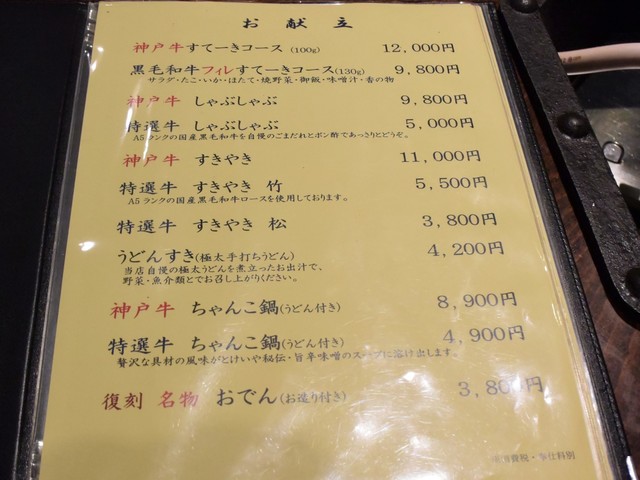 お献立
神戸牛すてーきコース(100g) 12,000円
黒毛和牛フィレすてーきコース(130g) 9,800円
サラダ・たこ・いか・ほたて・焼野菜・御飯・味噌汁・香の物
神戸牛 しゃぶしゃぶ 9,800円
特選牛 しゃぶしゃぶ 5,000円
A5ランクの国産黒毛和牛を自慢のごまだれとポン酢であっさりとどうぞ。
神戸牛 すきやき 11,000円
特選牛 すきやき 竹 5,500円
A5ランクの国産黒毛和牛ロースを使用しております。
特選牛 すきやき 松 3,800円
うどんすき(極太手打ちうどん) 4,200円
当店自慢の極太うどんを煮立ったお出汁で、
野菜・魚介類とでお召し上がりください。
神戸牛 ちゃんこ鍋(うどん付き) 8,900円
特選牛 ちゃんこ鍋(うどん付き) 4,900円
贅沢な具材の風味がとけいや秘伝・旨辛味噌のスープに溶け出します。
復刻 名物 おでん(お造り付き) 3,800円
消費税・奉仕料別